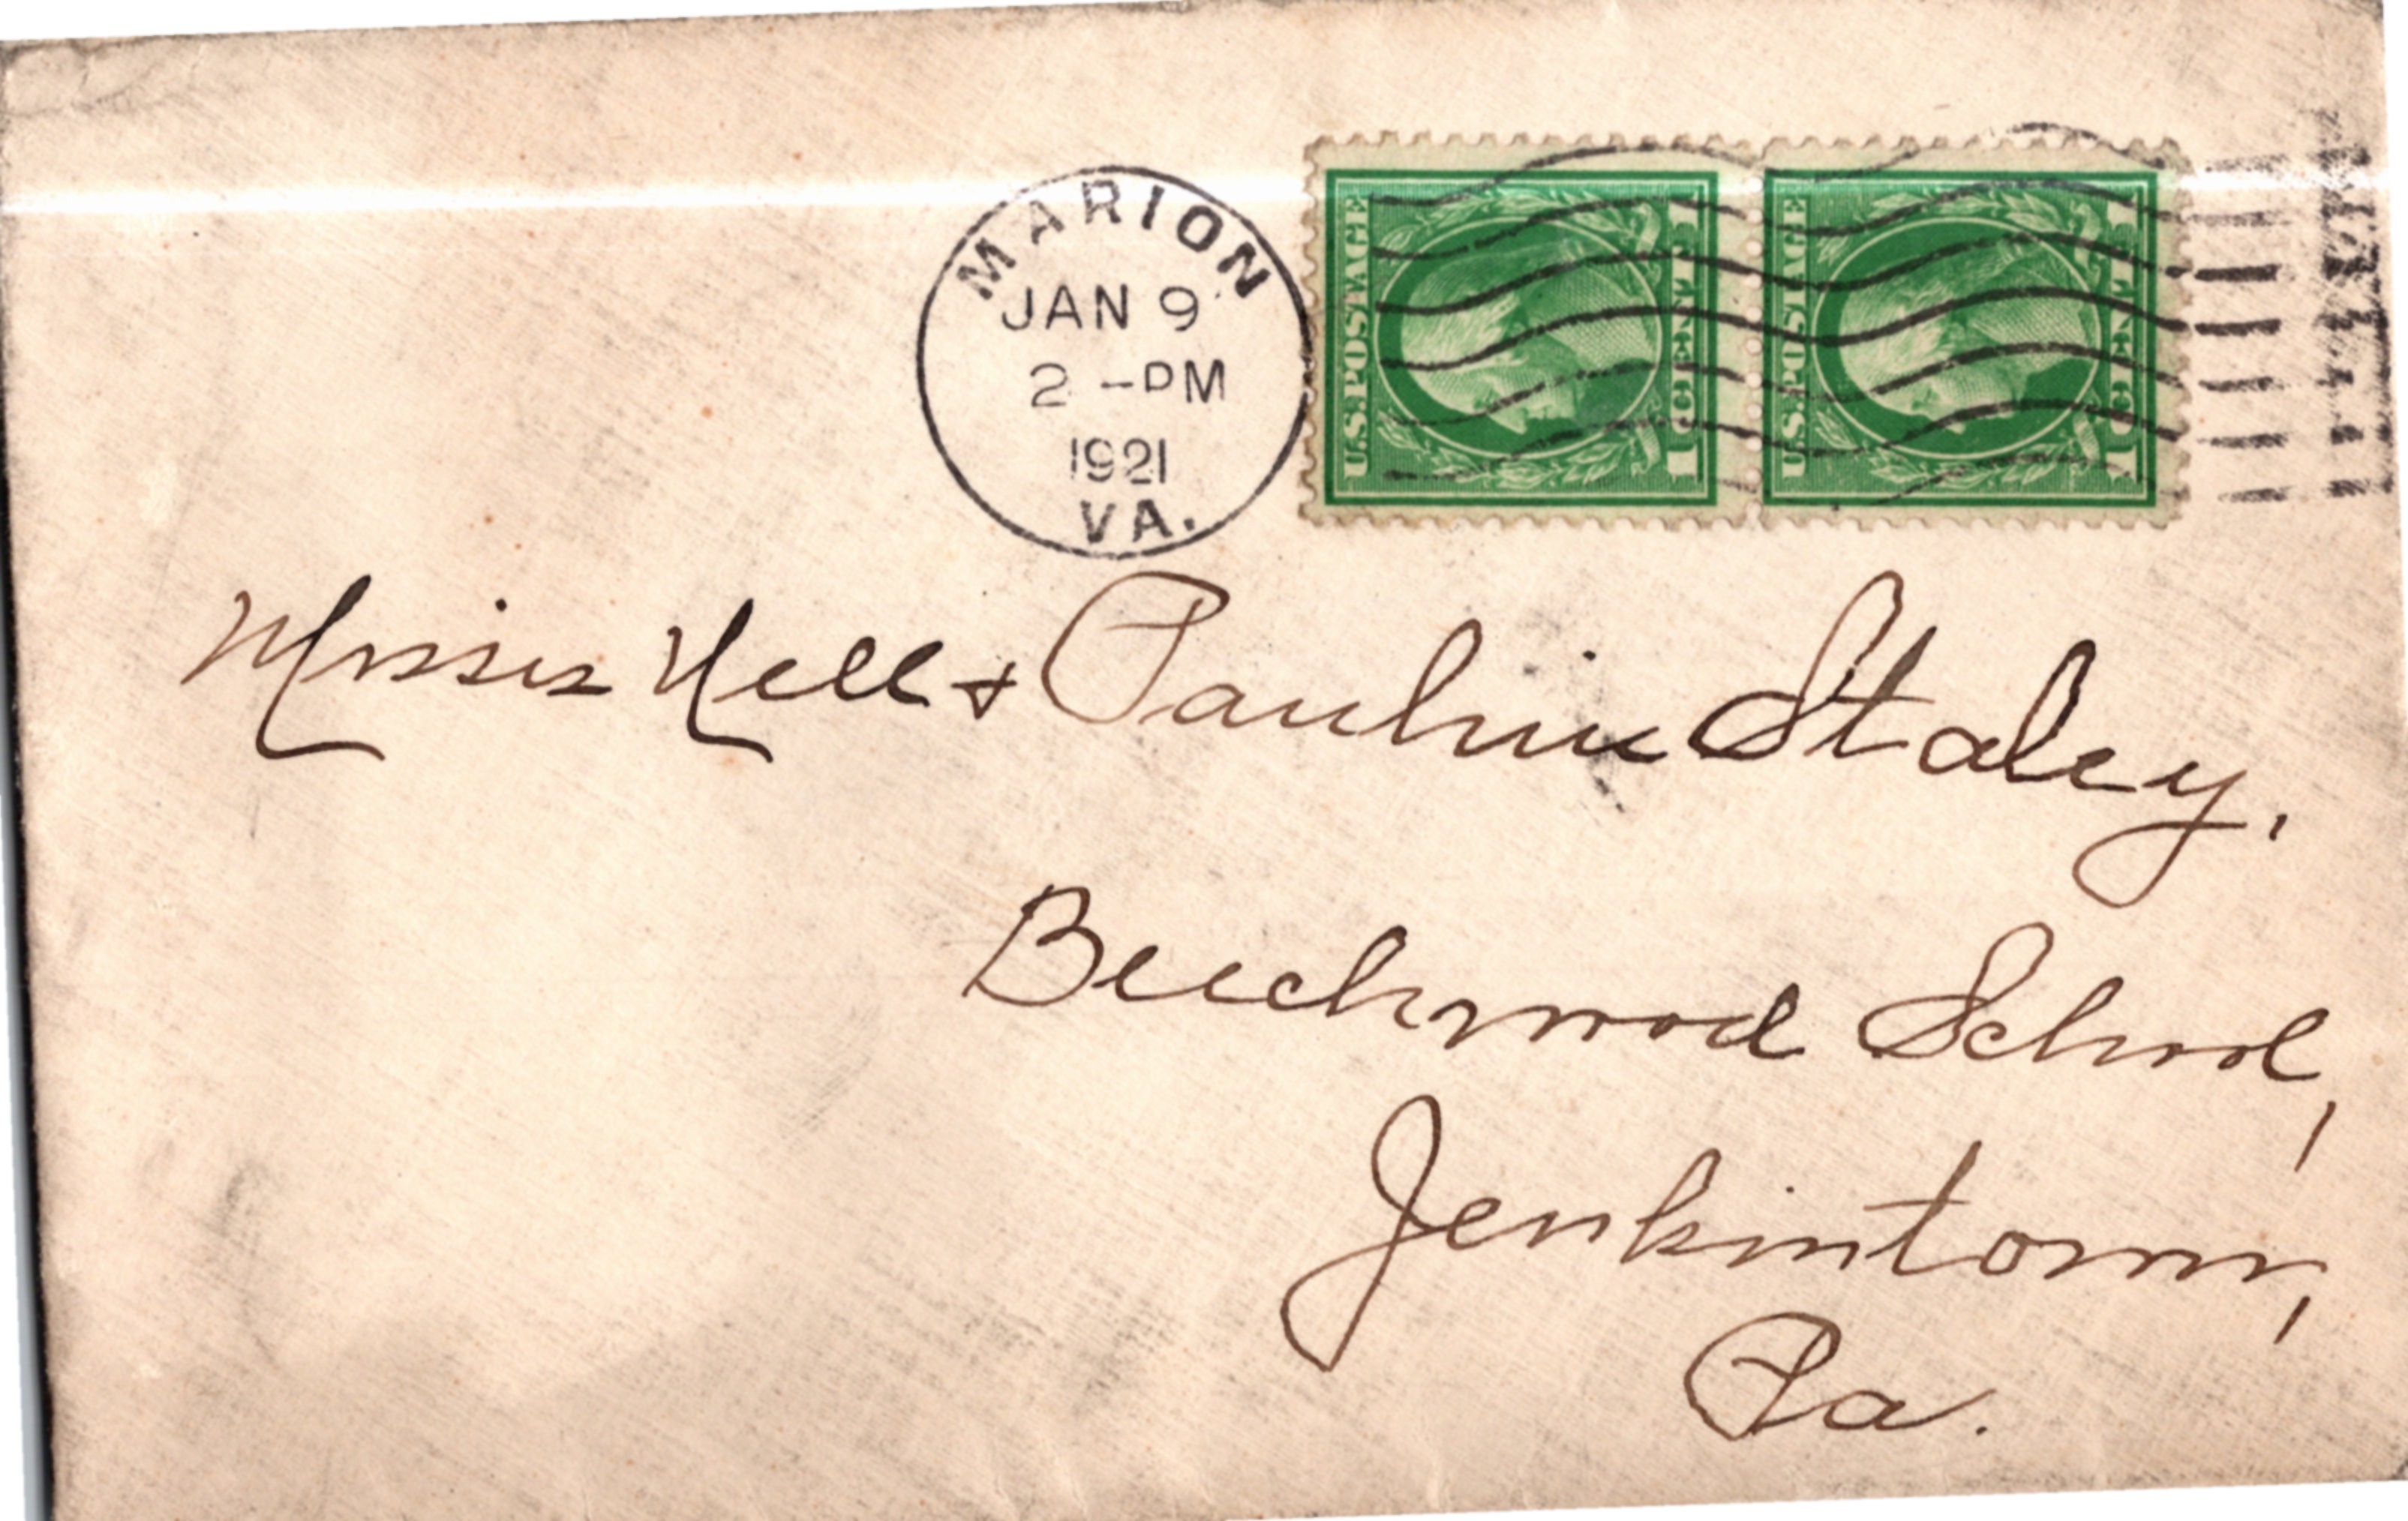 MARION
JAN 9
2 -PM
1921
VA.
U.S. POSTAGE
1 CENT 1
U.S. POSTAGE
1 CENT 1
Misses Nell & Pauline Staley,
Beechwood School,
Jenkintown,
Pa.